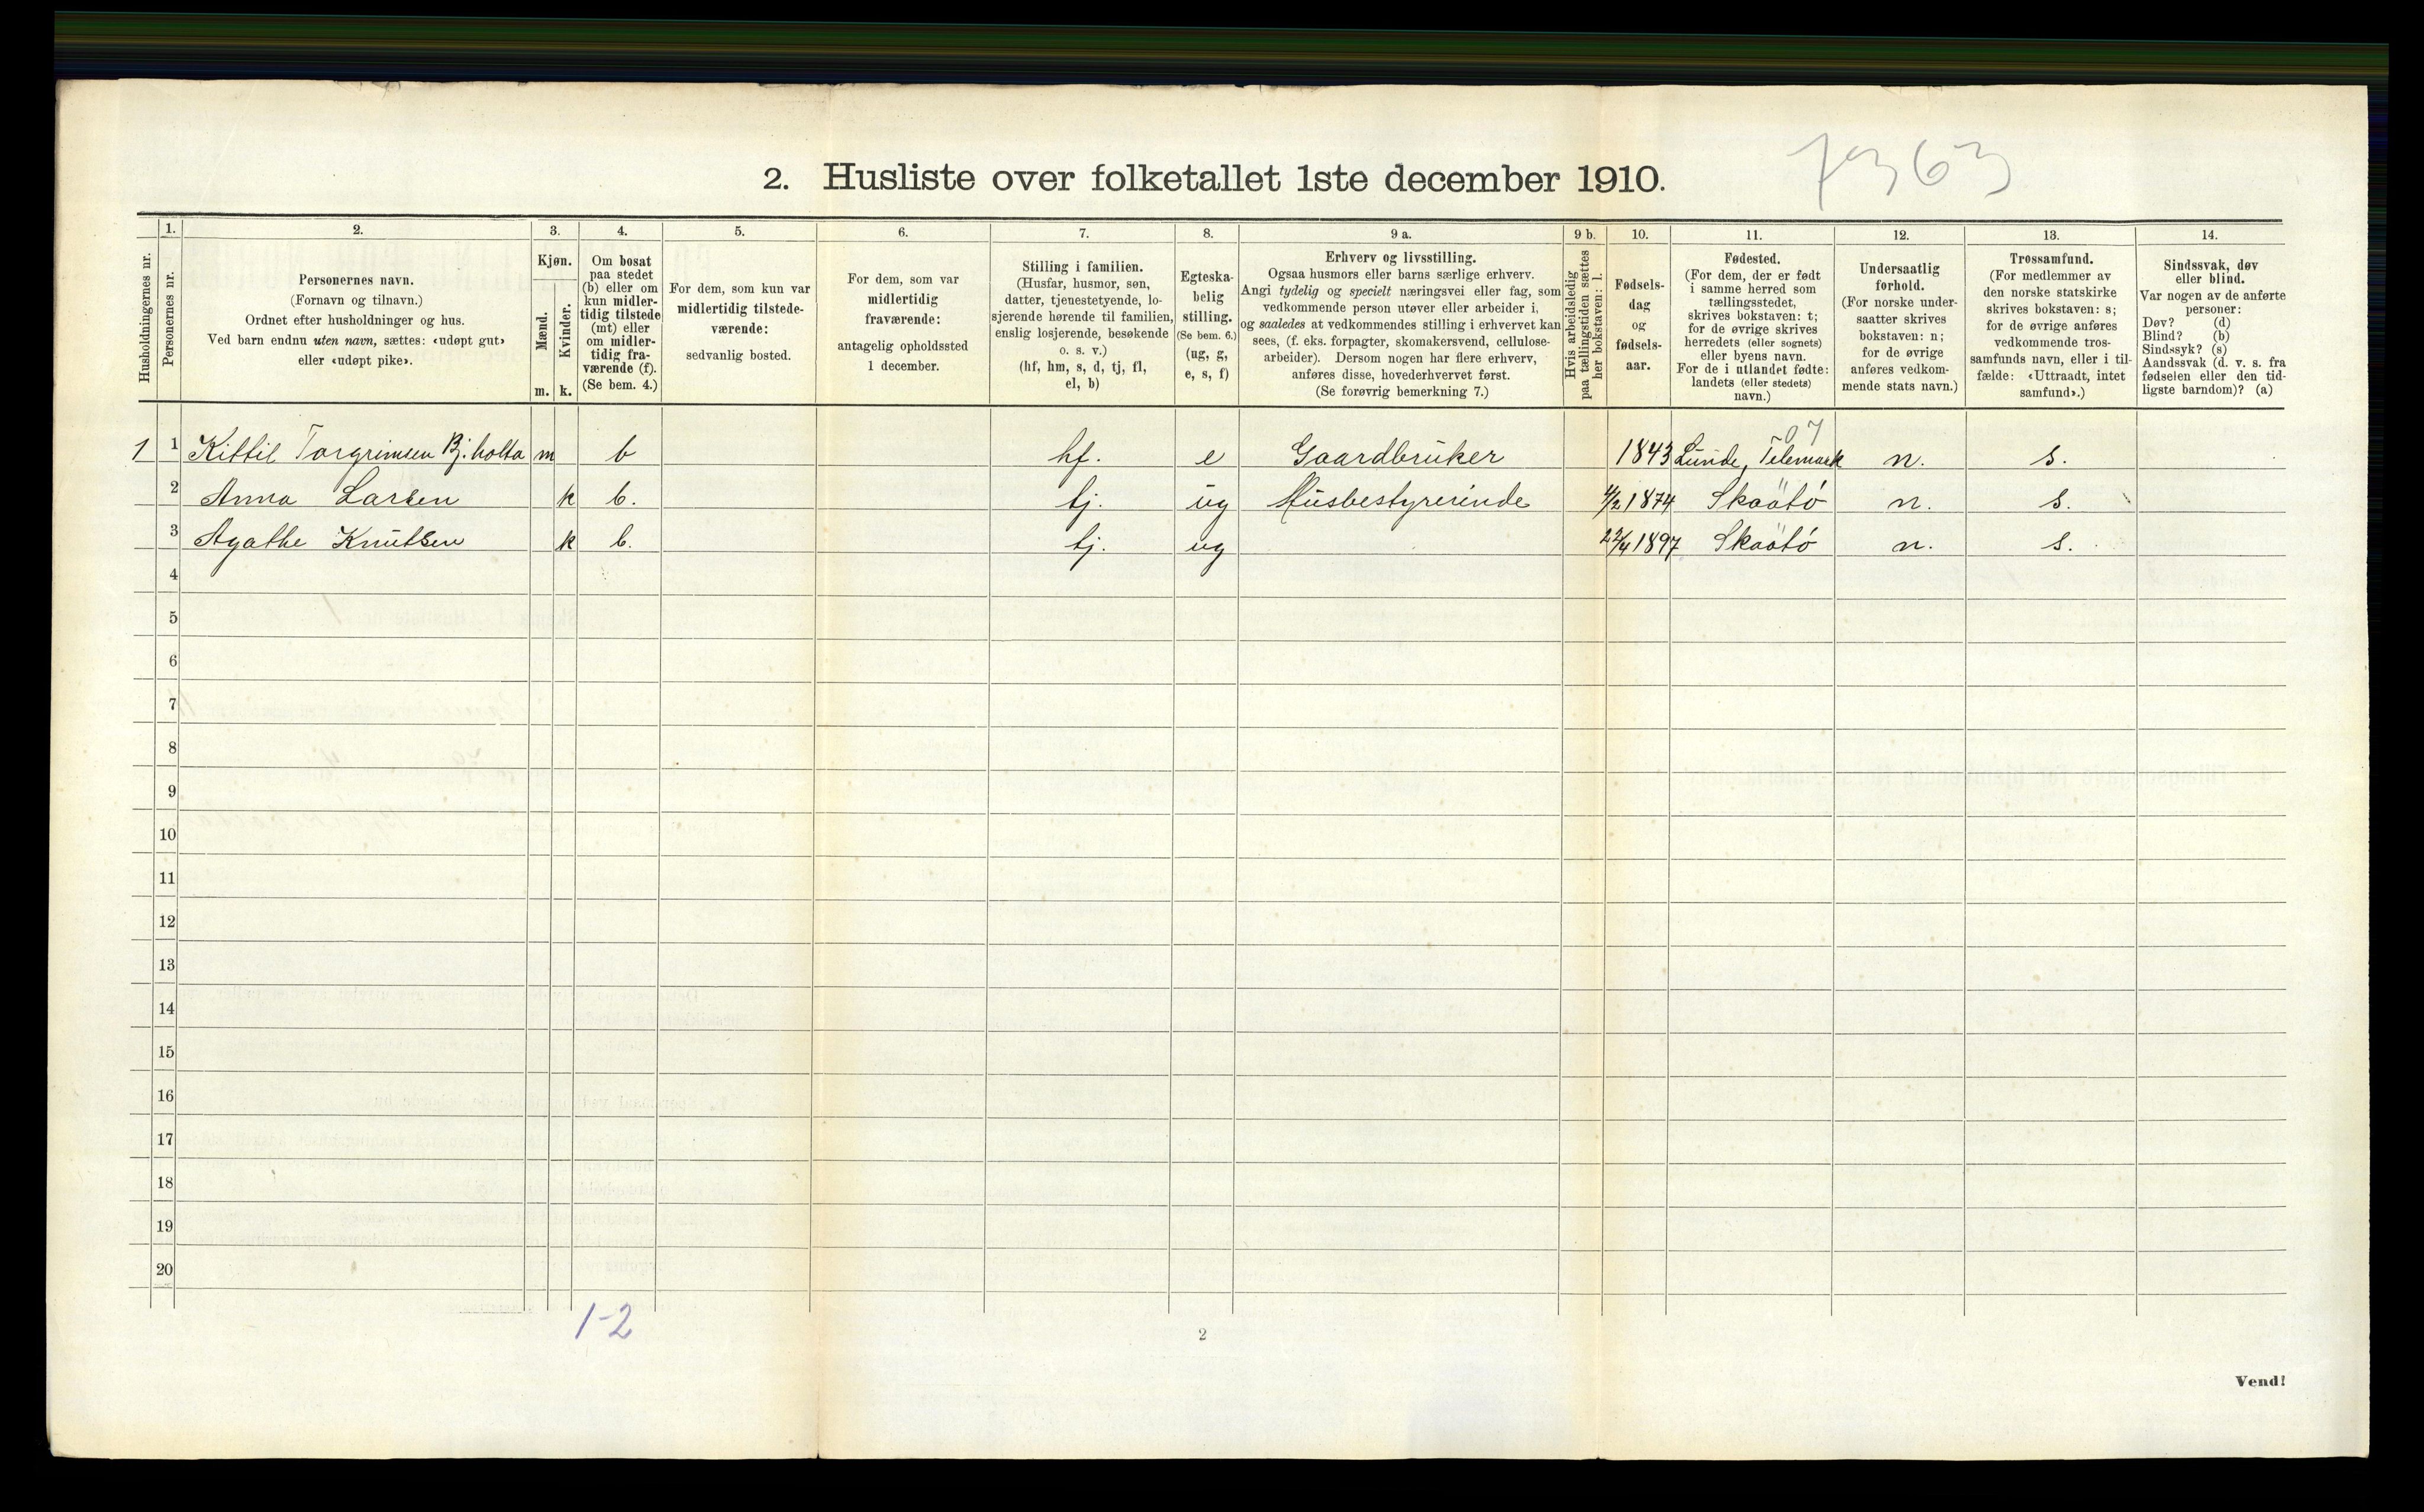 7363
2. Husliste over folketallet 1ste december 1910.
Husholdningernes nr.
1.
Personernes nr.
2.
Personernes navn.
(Fornavn og tilnavn.)
Ordnet efter husholdninger og hus.
Ved barn endnu uten navn, sættes: «udøpt gut»
eller «udøpt pike».
3.
Kjøn.
Mænd.
Kvinder.
m. k.
4.
Om bosat
paa stedet
(b) eller om
kun midler-
tidig tilstede
(mt) eller
om midler-
tidig fra-
værende (f).
(Se bem. 4.)
5.
For dem, som kun var
midlertidig tilstede-
værende:
sedvanlig bosted.
6.
For dem, som var
midlertidig
fraværende:
antagelig opholdssted
1 december.
7.
Stilling i familien.
(Husfar, husmor, søn,
datter, tjenestetyende, lo-
sjerende hørende til familien,
enslig losjerende, besøkende
o. s. v.)
(hf, hm, s, d, tj, fl,
el, b)
8.
Egteska-
belig
stilling.
(Se bem. 6.)
(ug, g,
e, s, f)
9 a.
Erhverv og livsstilling.
Ogsaa husmors eller barns særlige erhverv.
Angi tydelig og specielt næringsvei eller fag, som
vedkommende person utøver eller arbeider i,
og saaledes at vedkommendes stilling i erhvervet kan
sees, (f. eks. forpagter, skomakersvend, cellulose-
arbeider). Dersom nogen har flere erhverv,
anføres disse, hovederhvervet først.
(Se forøvrig bemerkning 7.)
9 b.
Hvis arbeidsledig
paa tællingstiden sættes
her bokstaven: l.
10.
Fødsels-
dag
og
fødsels-
aar.
11.
Fødested.
(For dem, der er født
i samme herred som
tællingsstedet,
skrives bokstaven: t;
for de øvrige skrives
herredets (eller sognets)
eller byens navn.
For de i utlandet fødte:
landets (eller stedets)
navn.)
12.
Undersaatlig
forhold.
(For norske under-
saatter skrives
bokstaven: n;
for de øvrige
anføres vedkom-
mende stats navn.)
13.
Trossamfund.
(For medlemmer av
den norske statskirke
skrives bokstaven: s;
for de øvrige anføres
vedkommende tros-
samfunds navn, eller i til-
fælde: «Uttraadt, intet
samfund».)
14.
Sindssvak, døv
eller blind.
Var nogen av de anførte
personer:
Døv? (d)
Blind? (b)
Sindssyk? (s)
Aandssvak (d. v. s. fra
fødselen eller den tid-
ligste barndom)? (a)
07
1 1 Kittil Torgrimsen Bj.holta m b hf. e Gaardbruker 1843 Lunde, Telemark n. s.
2 Anna Larsen k b. tj. ug Husbestyrerinde 4/2 1874 Skaatö n. s.
3 Agathe Knutsen k b. tj. ug 22/4 1897 Skaatö n. s.
4
5
6
7
8
9
10
11
12
13
14
15
16
17
18
19
20
1-2
2
Vend!